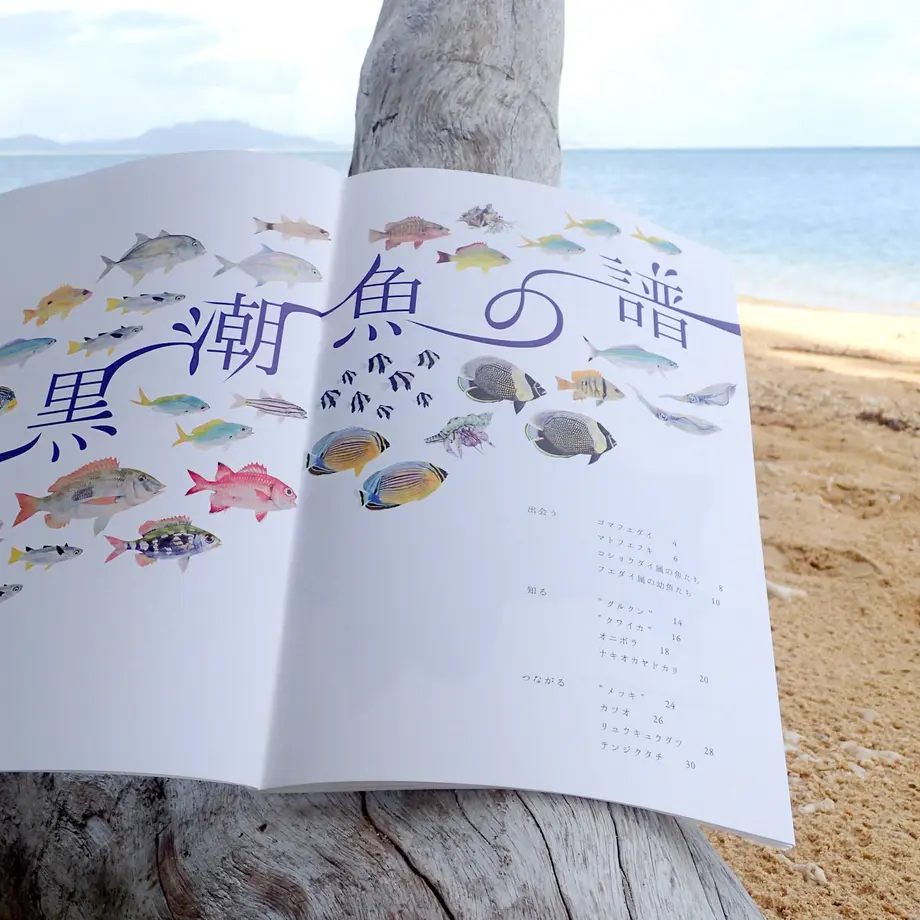 黒潮魚の譜
出会う
コマフエダイ 4
マトフエフキ 6
コショウダイ風の魚たち 8
フエダイ風の幼魚たち 10
知る
"グルタン" 14
"クワイカ" 16
オニボラ 18
ナキオカヤドカリ 20
つながる
"メッキ" 24
カツオ 26
リュウキュウダツ 28
テンジクタチ 30